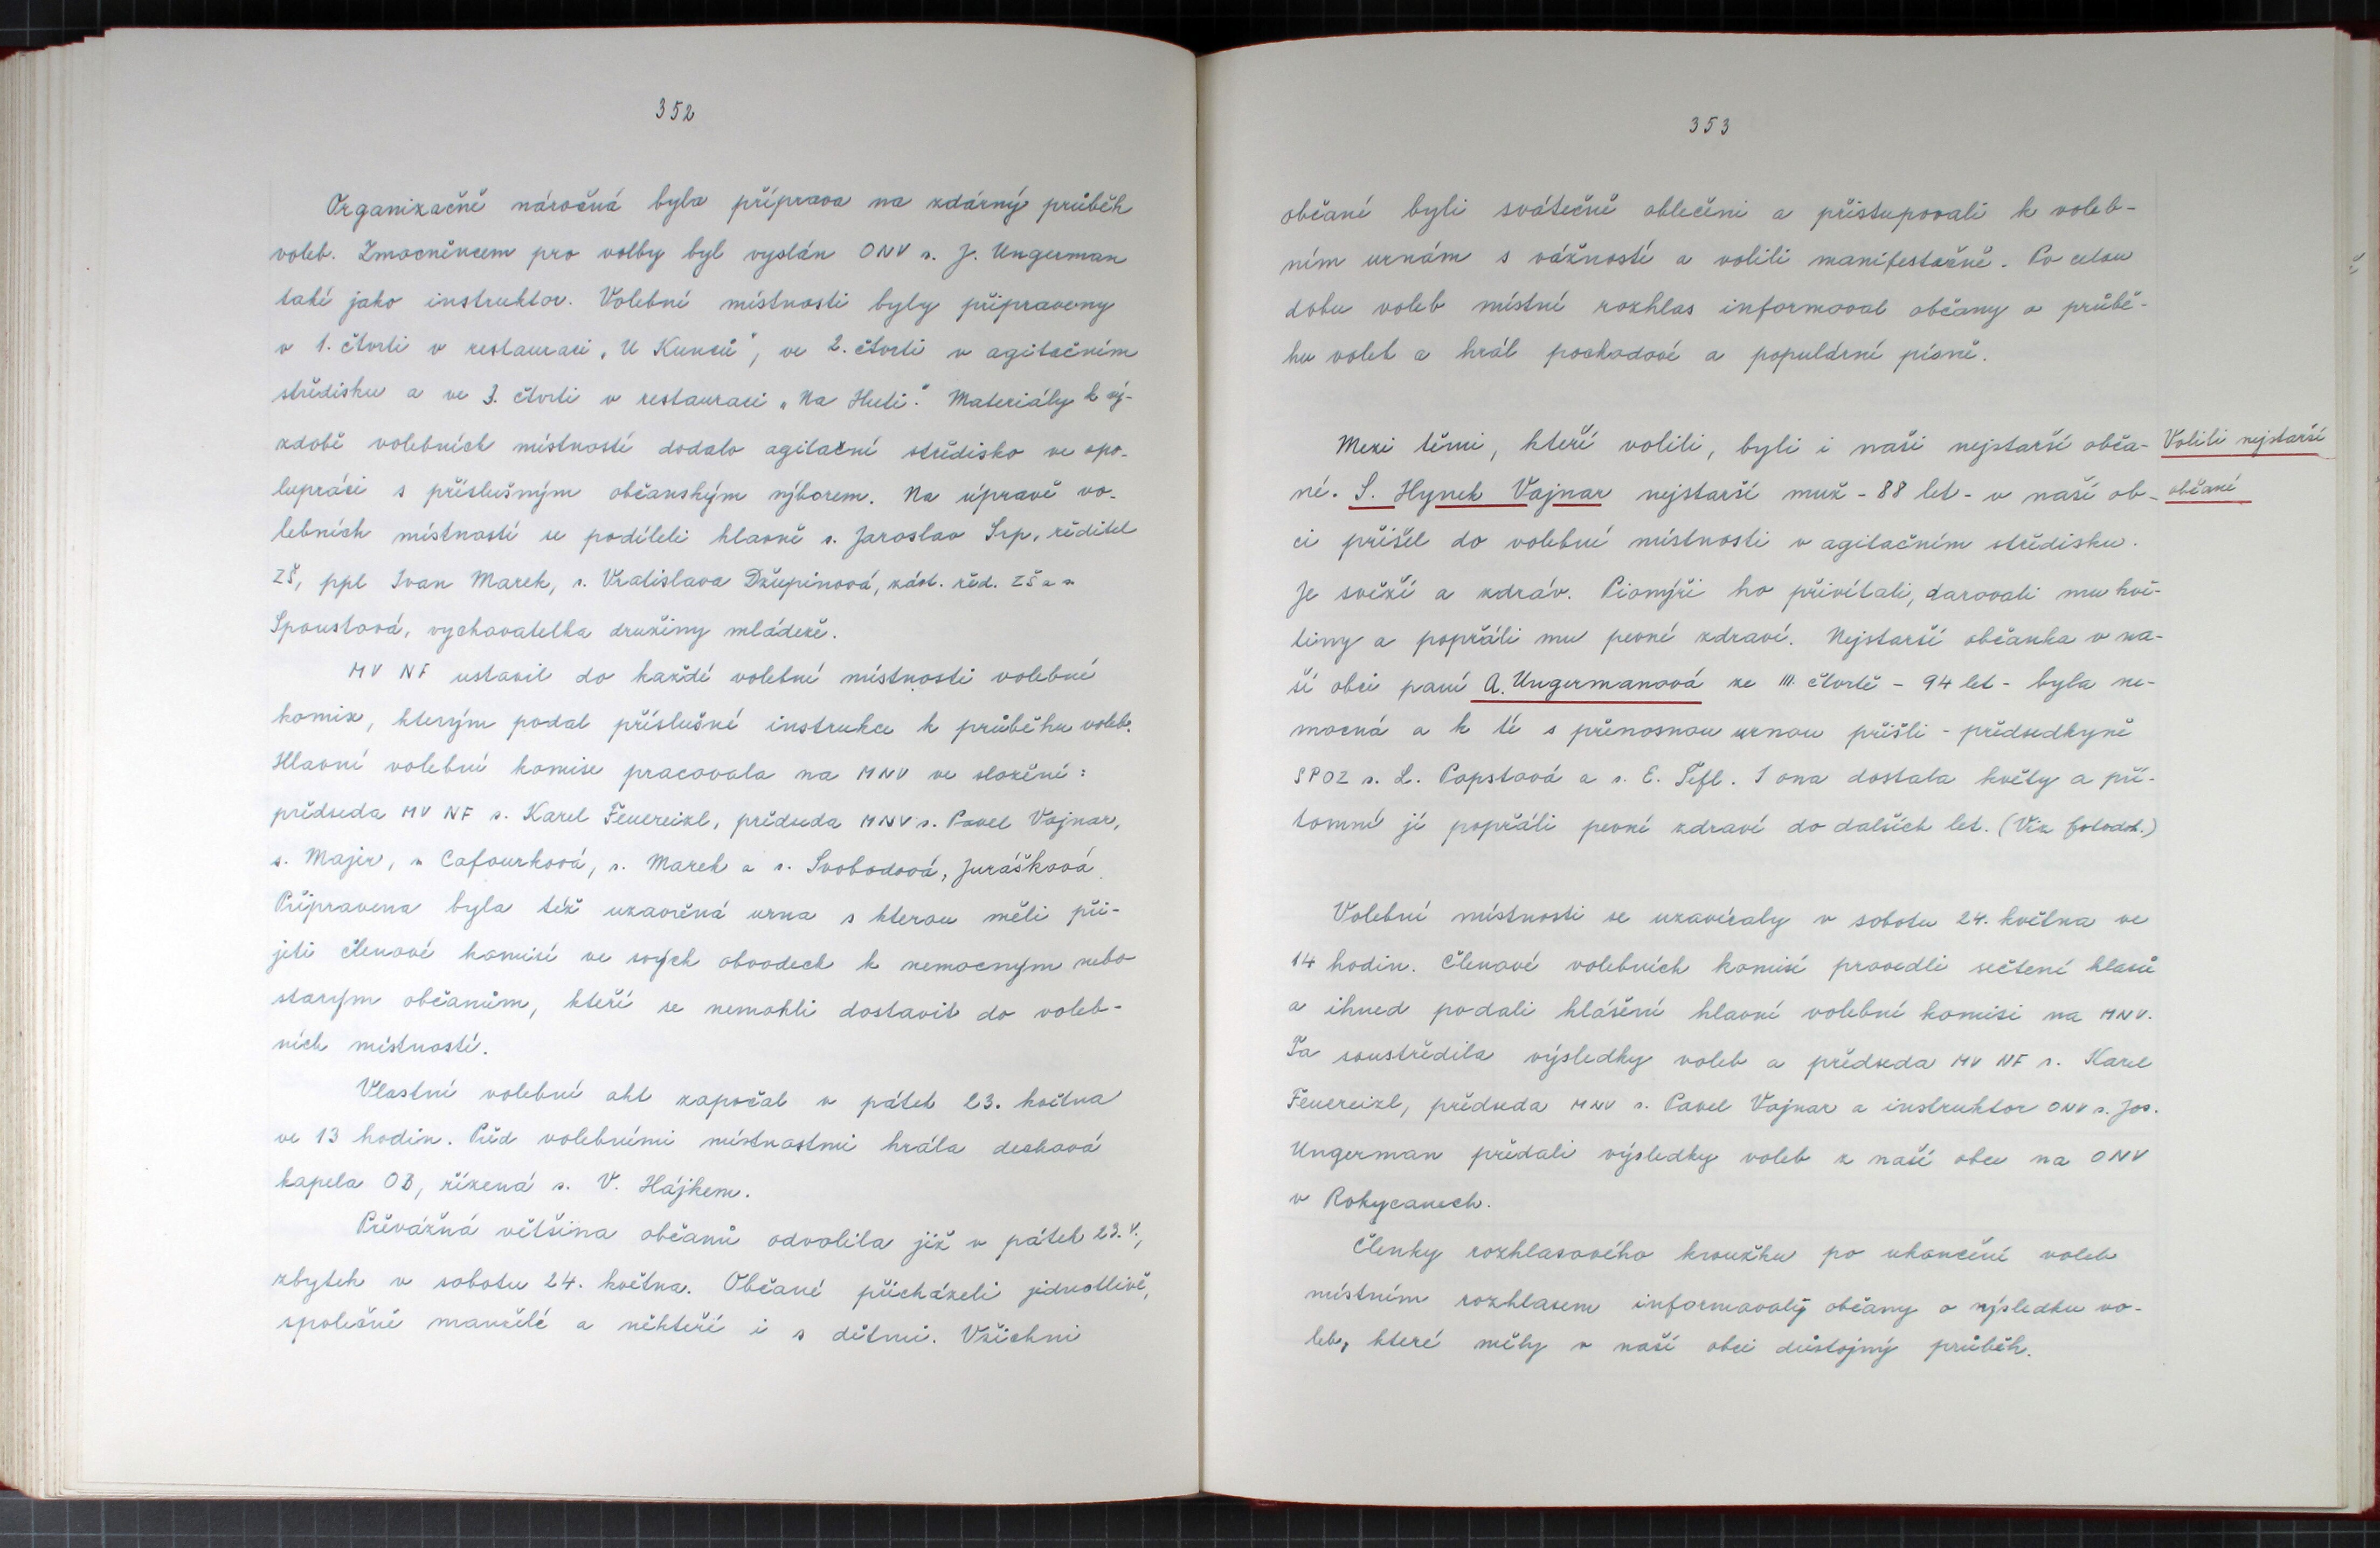 352
Organizačně náročná byla příprava na zdárný průběh
voleb. Zmocněncem pro volby byl vyslán ONV s. J. Ungerman
také jako instruktor. Volební místnosti byly připraveny
v 1. čtvrti v restauraci „U Kunců", ve 2. čtvrti v agitačním
středisku a ve 3. čtvrti v restauraci „Na Huti". Materiály k vý-
zdobě volebních místností dodalo agitační středisko ve spo-
lupráci s příslušným občanským výborem. Na úpravě vo-
lebních místností se podíleli hlavně s. Jaroslav Srp, ředitel
ZŠ, ppl Ivan Marek, s. Vratislava Džupinová, zást. řed. ZŠ a s.
Spoustová, vychovatelka družiny mládeže.
MV NF ustavil do každé volební místnosti volební
komix, kterým podal příslušné instrukce k průběhu voleb.
Hlavní volební komise pracovala na MNV ve složení:
předseda MV NF s. Karel Feuereizl, předseda MNV s. Pavel Vajnar,
s. Majer, s. Cafourková, s. Marek a s. Svobodová, Jurášková.
Připravena byla též uzavřená urna s kterou měli při-
jeti členové komisí ve svých obvodech k nemocným nebo
starým občanům, kteří se nemohli dostavit do voleb-
ních místností.
Vlastní volební akt započal v pátek 23. května
ve 13 hodin. Před volebními místnostmi hrála dechová
kapela OB, řízená s. V. Hájkem.
Převážná většina občanů odvolila již v pátek 23. V.,
zbytek v sobotu 24. května. Občané přicházeli jednotlivě,
společně manželé a někteří i s dětmi. Všichni
353
občané byli svátečně oblečeni a přistupovali k voleb-
ním urnám s vážností a volili manifestačně. Po celou
dobu voleb místní rozhlas informoval občany o průbě-
hu voleb a hrál pochodové a populární písně.
Mezi těmi, kteří volili, byli i naši nejstarší obča-
Volili nejstarší
né. S. Hynek Vajnar nejstarší muž - 88 let - v naší ob-
občané
ci přišel do volební místnosti v agitačním středisku.
Je svěží a zdráv. Pionýři ho přivítali, darovali mu kvě-
tiny a popřáli mu pevné zdraví. Nejstarší občanka v na-
ší obci paní A. Ungermanová ze III. čtvrtě - 94 let - byla ne-
mocná a k té s přenosnou urnou přišli - předsedkyně
SPOZ s. L. Popstová a s. E. Šefl. I ona dostala květy a pří-
tomní jí popřáli pevné zdraví do dalších let. (Viz fotodok.)
Volební místnosti se uzavíraly v sobotu 24. května ve
14 hodin. Členové volebních komisí provedli sečtení hlasů
a ihned podali hlášení hlavní volební komisi na MNV.
Ta soustředila výsledky voleb a předseda MV NF s. Karel
Feuereizl, předseda MNV s. Pavel Vajnar a instruktor ONV s. Jos.
Ungerman předali výsledky voleb z naší obce na ONV
v Rokycanech.
Členky rozhlasového kroužku po ukončení voleb
místním rozhlasem informovaly občany o výsledku vo-
leb, které měly v naší obci důstojný průběh.